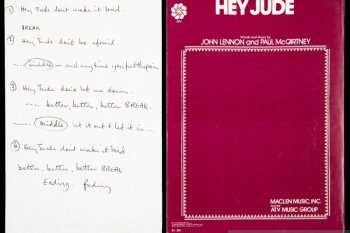 ① Hey Jude don't make it bad.
BREAK
② Hey Jude don't be afraid
... middle — and anytime you feel the pain.
③ Hey Jude don't let me down.
---- better, better, better BREAK.
middle let it out & let it in ...
④ Hey Jude don't make it bad
better, better, better BREAK
Ending. Fading
HEY JUDE
Words and Music by
JOHN LENNON and PAUL McCARTNEY
MACLEN MUSIC, INC.
ATV MUSIC GROUP